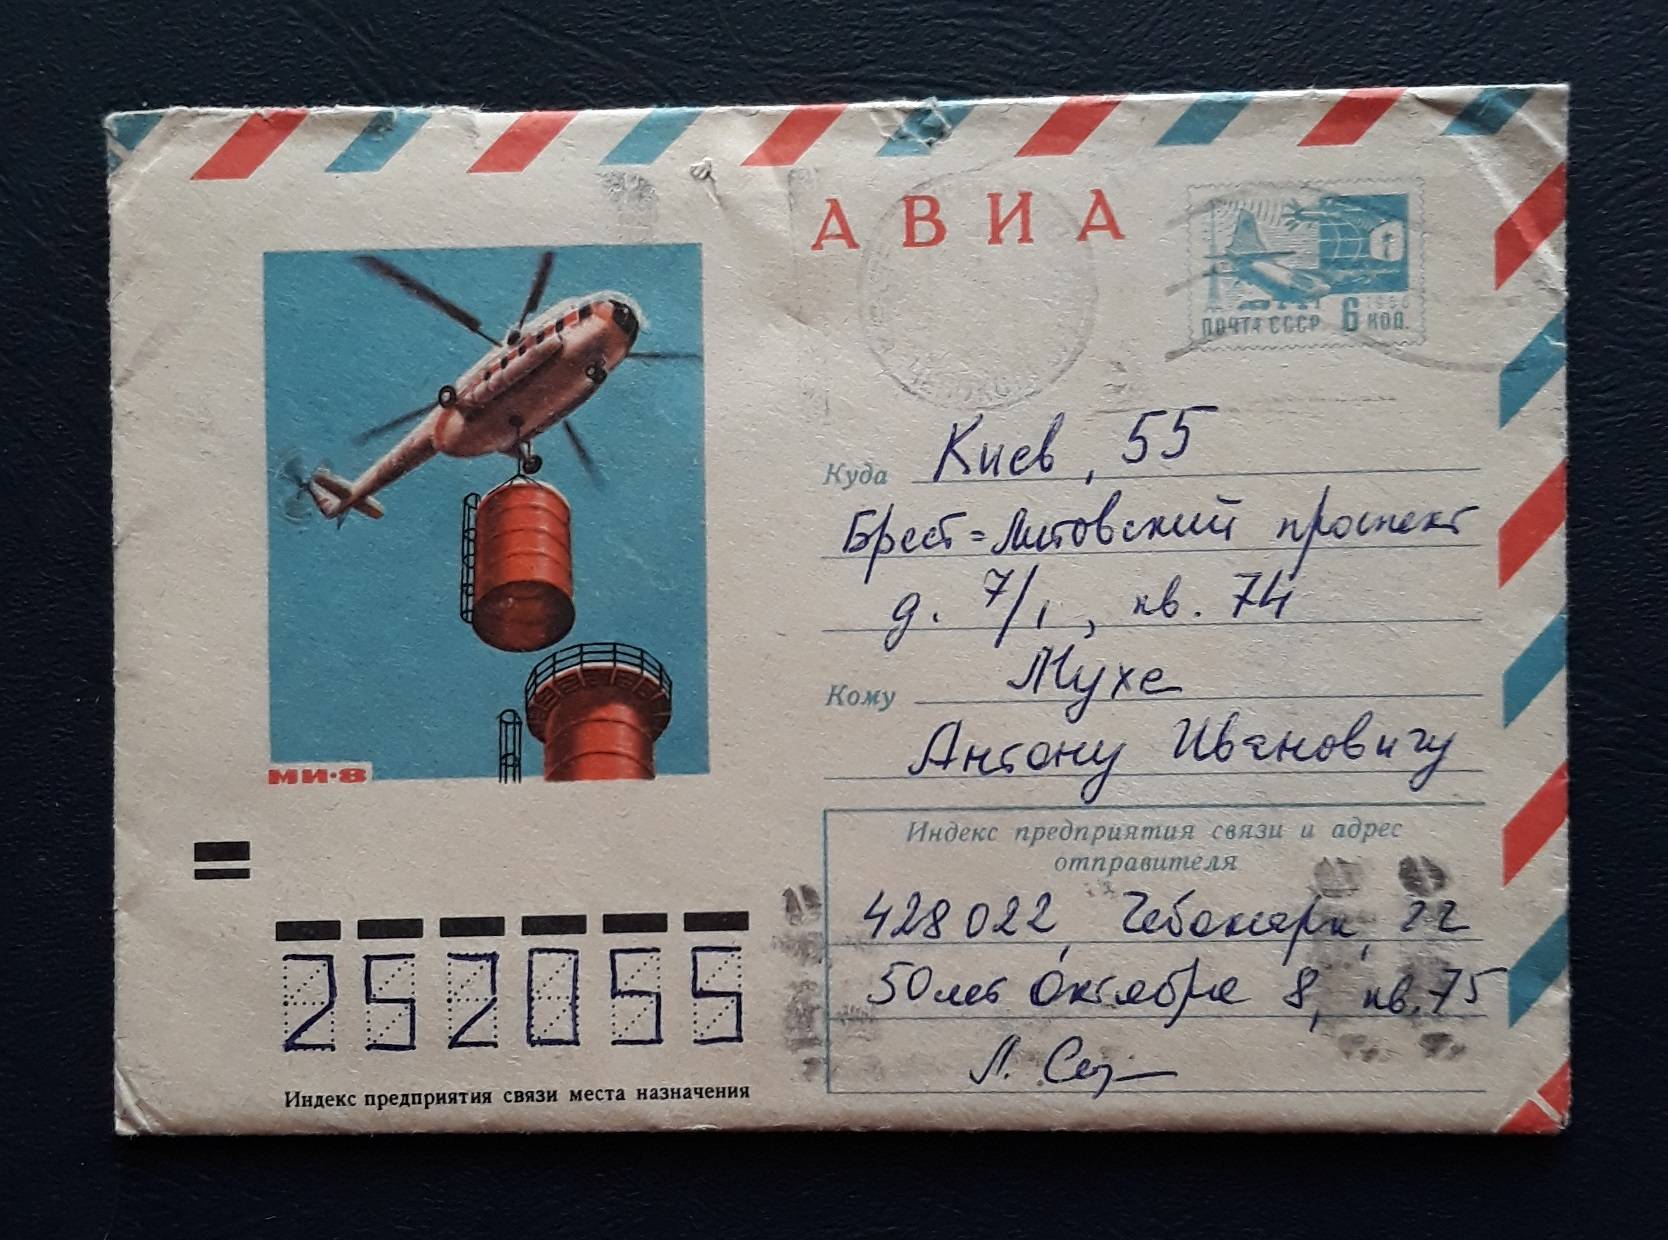 АВИА
1966
ПОЧТА СССР 6 КОП.
МИ-8
Куда Киев, 55
Брест=Литовский проспект
д. 7/1, кв. 74
Кому Мухе
Антону Ивановичу
Индекс предприятия связи и адрес
отправителя
428022, Чебоксары, 22
50 лет Октября 8, кв. 75
Л.
252055
Индекс предприятия связи места назначения